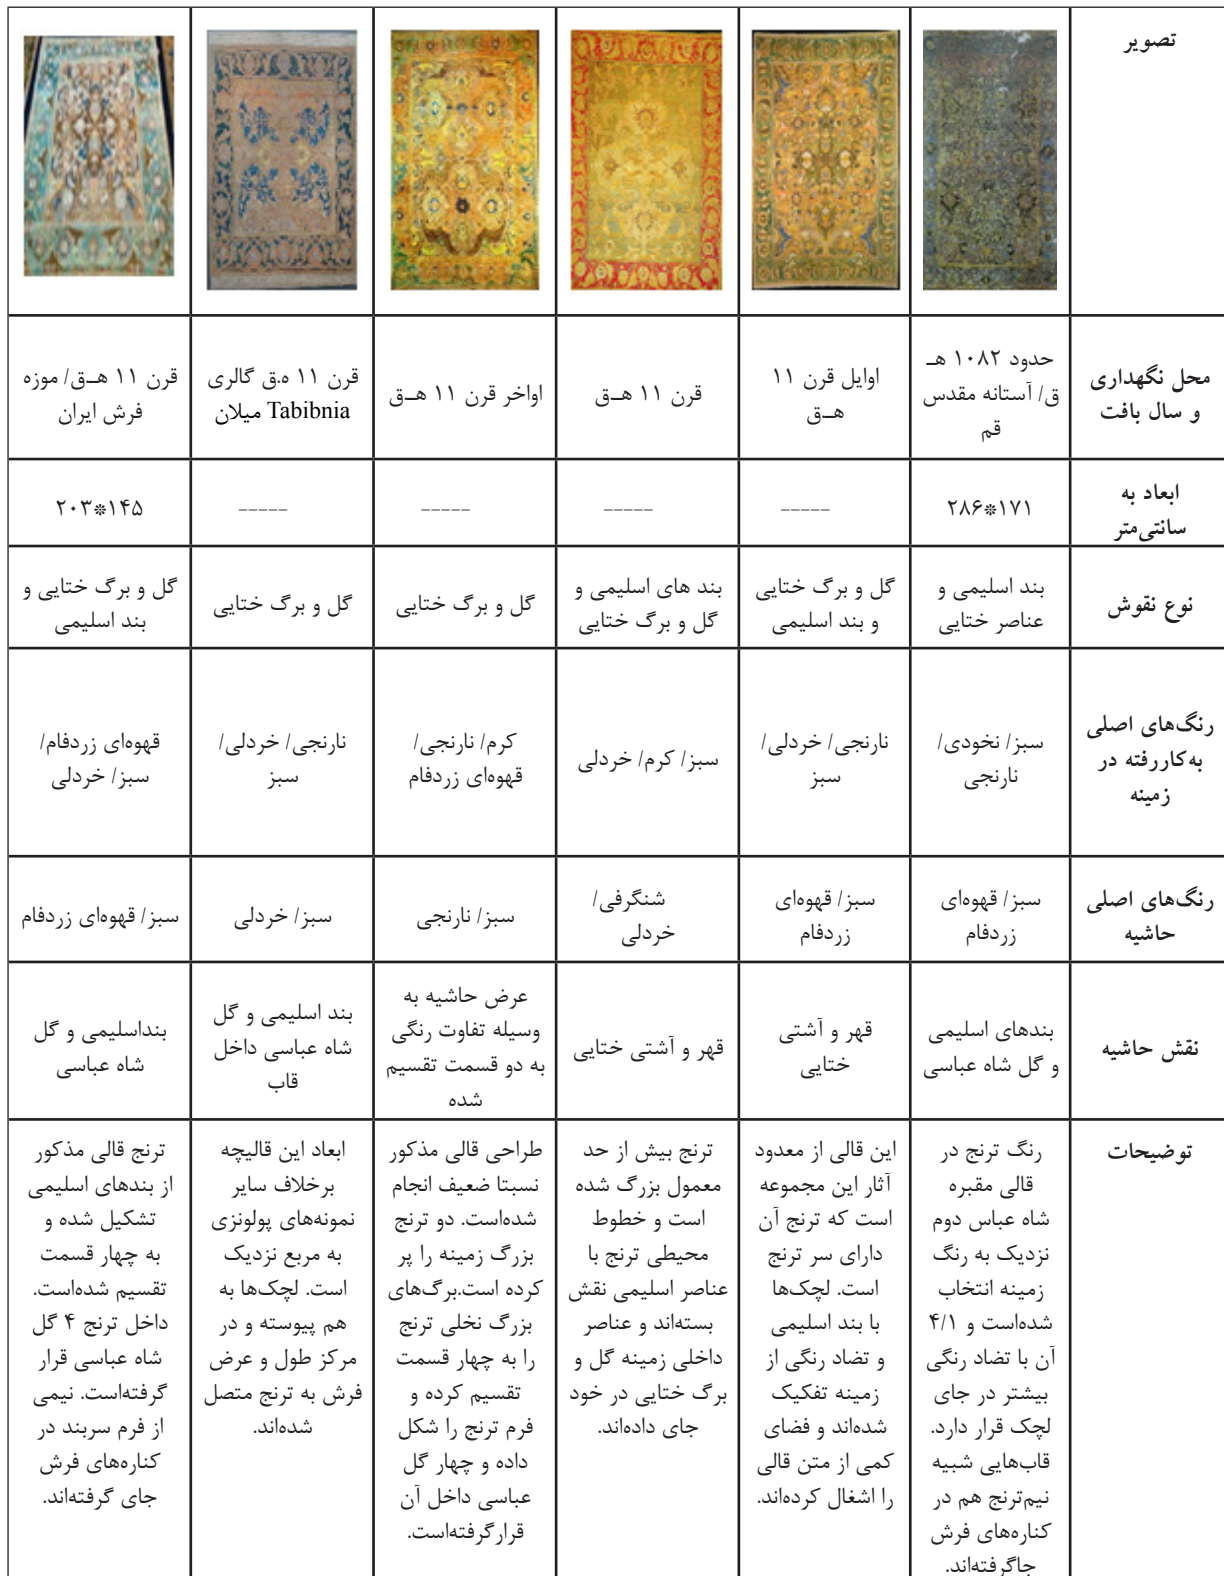 تصویر
محل نگهداری
و سال بافت
حدود ۱۰۸۲ هـ
ق/ آستانه مقدس
قم
اوایل قرن ۱۱
هـق
قرن ۱۱ هـق
اواخر قرن ۱۱ هـق
قرن ۱۱ ه.ق گالری
Tabibnia میلان
قرن ۱۱ هـق/ موزه
فرش ایران
ابعاد به
سانتی‌متر
۲۸۶*۱۷۱
-----
-----
-----
-----
۲۰۳*۱۴۵
نوع نقوش
بند اسلیمی و
عناصر ختایی
گل و برگ ختایی
و بند اسلیمی
بند های اسلیمی و
گل و برگ ختایی
گل و برگ ختایی
گل و برگ ختایی
گل و برگ ختایی و
بند اسلیمی
رنگ‌های اصلی
به‌کاررفته در
زمینه
سبز/ نخودی/
نارنجی
نارنجی/ خردلی/
سبز
سبز/ کرم/ خردلی
کرم/ نارنجی/
قهوه‌ای زردفام
نارنجی/ خردلی/
سبز
قهوه‌ای زردفام/
سبز/ خردلی
رنگ‌های اصلی
حاشیه
سبز/ قهوه‌ای
زردفام
سبز/ قهوه‌ای
زردفام
شنگرفی/
خردلی
سبز/ نارنجی
سبز/ خردلی
سبز/ قهوه‌ای زردفام
نقش حاشیه
بندهای اسلیمی
و گل شاه عباسی
قهر و آشتی
ختایی
قهر و آشتی ختایی
عرض حاشیه به
وسیله تفاوت رنگی
به دو قسمت تقسیم
شده
بند اسلیمی و گل
شاه عباسی داخل
قاب
بنداسلیمی و گل
شاه عباسی
توضیحات
رنگ ترنج در
قالی مقبره
شاه عباس دوم
نزدیک به رنگ
زمینه انتخاب
شده‌است و ۴/۱
آن با تضاد رنگی
بیشتر در جای
لچک قرار دارد.
قاب‌هایی شبیه
نیم‌ترنج هم در
کناره‌های فرش
جاگرفته‌اند.
این قالی از معدود
آثار این مجموعه
است که ترنج آن
دارای سر ترنج
است. لچک‌ها
با بند اسلیمی
و تضاد رنگی از
زمینه تفکیک
شده‌اند و فضای
کمی از متن قالی
را اشغال کرده‌اند.
ترنج بیش از حد
معمول بزرگ شده
است و خطوط
محیطی ترنج با
عناصر اسلیمی نقش
بسته‌اند و عناصر
داخلی زمینه گل و
برگ ختایی در خود
جای داده‌اند.
طراحی قالی مذکور
نسبتا ضعیف انجام
شده‌است. دو ترنج
بزرگ زمینه را پر
کرده است.برگ‌های
بزرگ نخلی ترنج
را به چهار قسمت
تقسیم کرده و
فرم ترنج را شکل
داده و چهار گل
عباسی داخل آن
قرارگرفته‌است.
ابعاد این قالیچه
برخلاف سایر
نمونه‌های پولونزی
به مربع نزدیک
است. لچک‌ها به
هم پیوسته و در
مرکز طول و عرض
فرش به ترنج متصل
شده‌اند.
ترنج قالی مذکور
از بندهای اسلیمی
تشکیل شده و
به چهار قسمت
تقسیم شده‌است.
داخل ترنج ۴ گل
شاه عباسی قرار
گرفته‌است. نیمی
از فرم سربند در
کناره‌های فرش
جای گرفته‌اند.